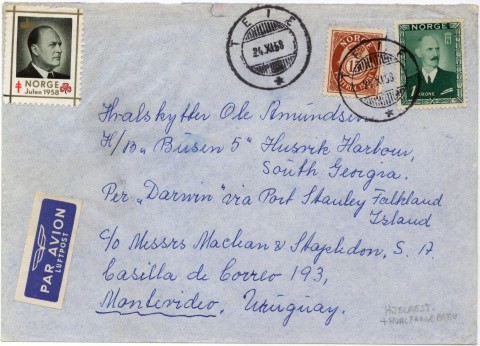 NORGE
Julen 1958
TEIE
24.XI.58
NORGE
NORGE
1 KRONE
Hvalskytter Ole Amundsen
H/B „Busen 5" Husvik Harbour,
South Georgia.
Per „Darwin" via Port Stanley Falkland
Island
c/o Messrs Maclean & Stapledon, S. A.
Casilla de Correo 193,
Montevideo, Uruguay.
PAR AVION
LUFTPOST